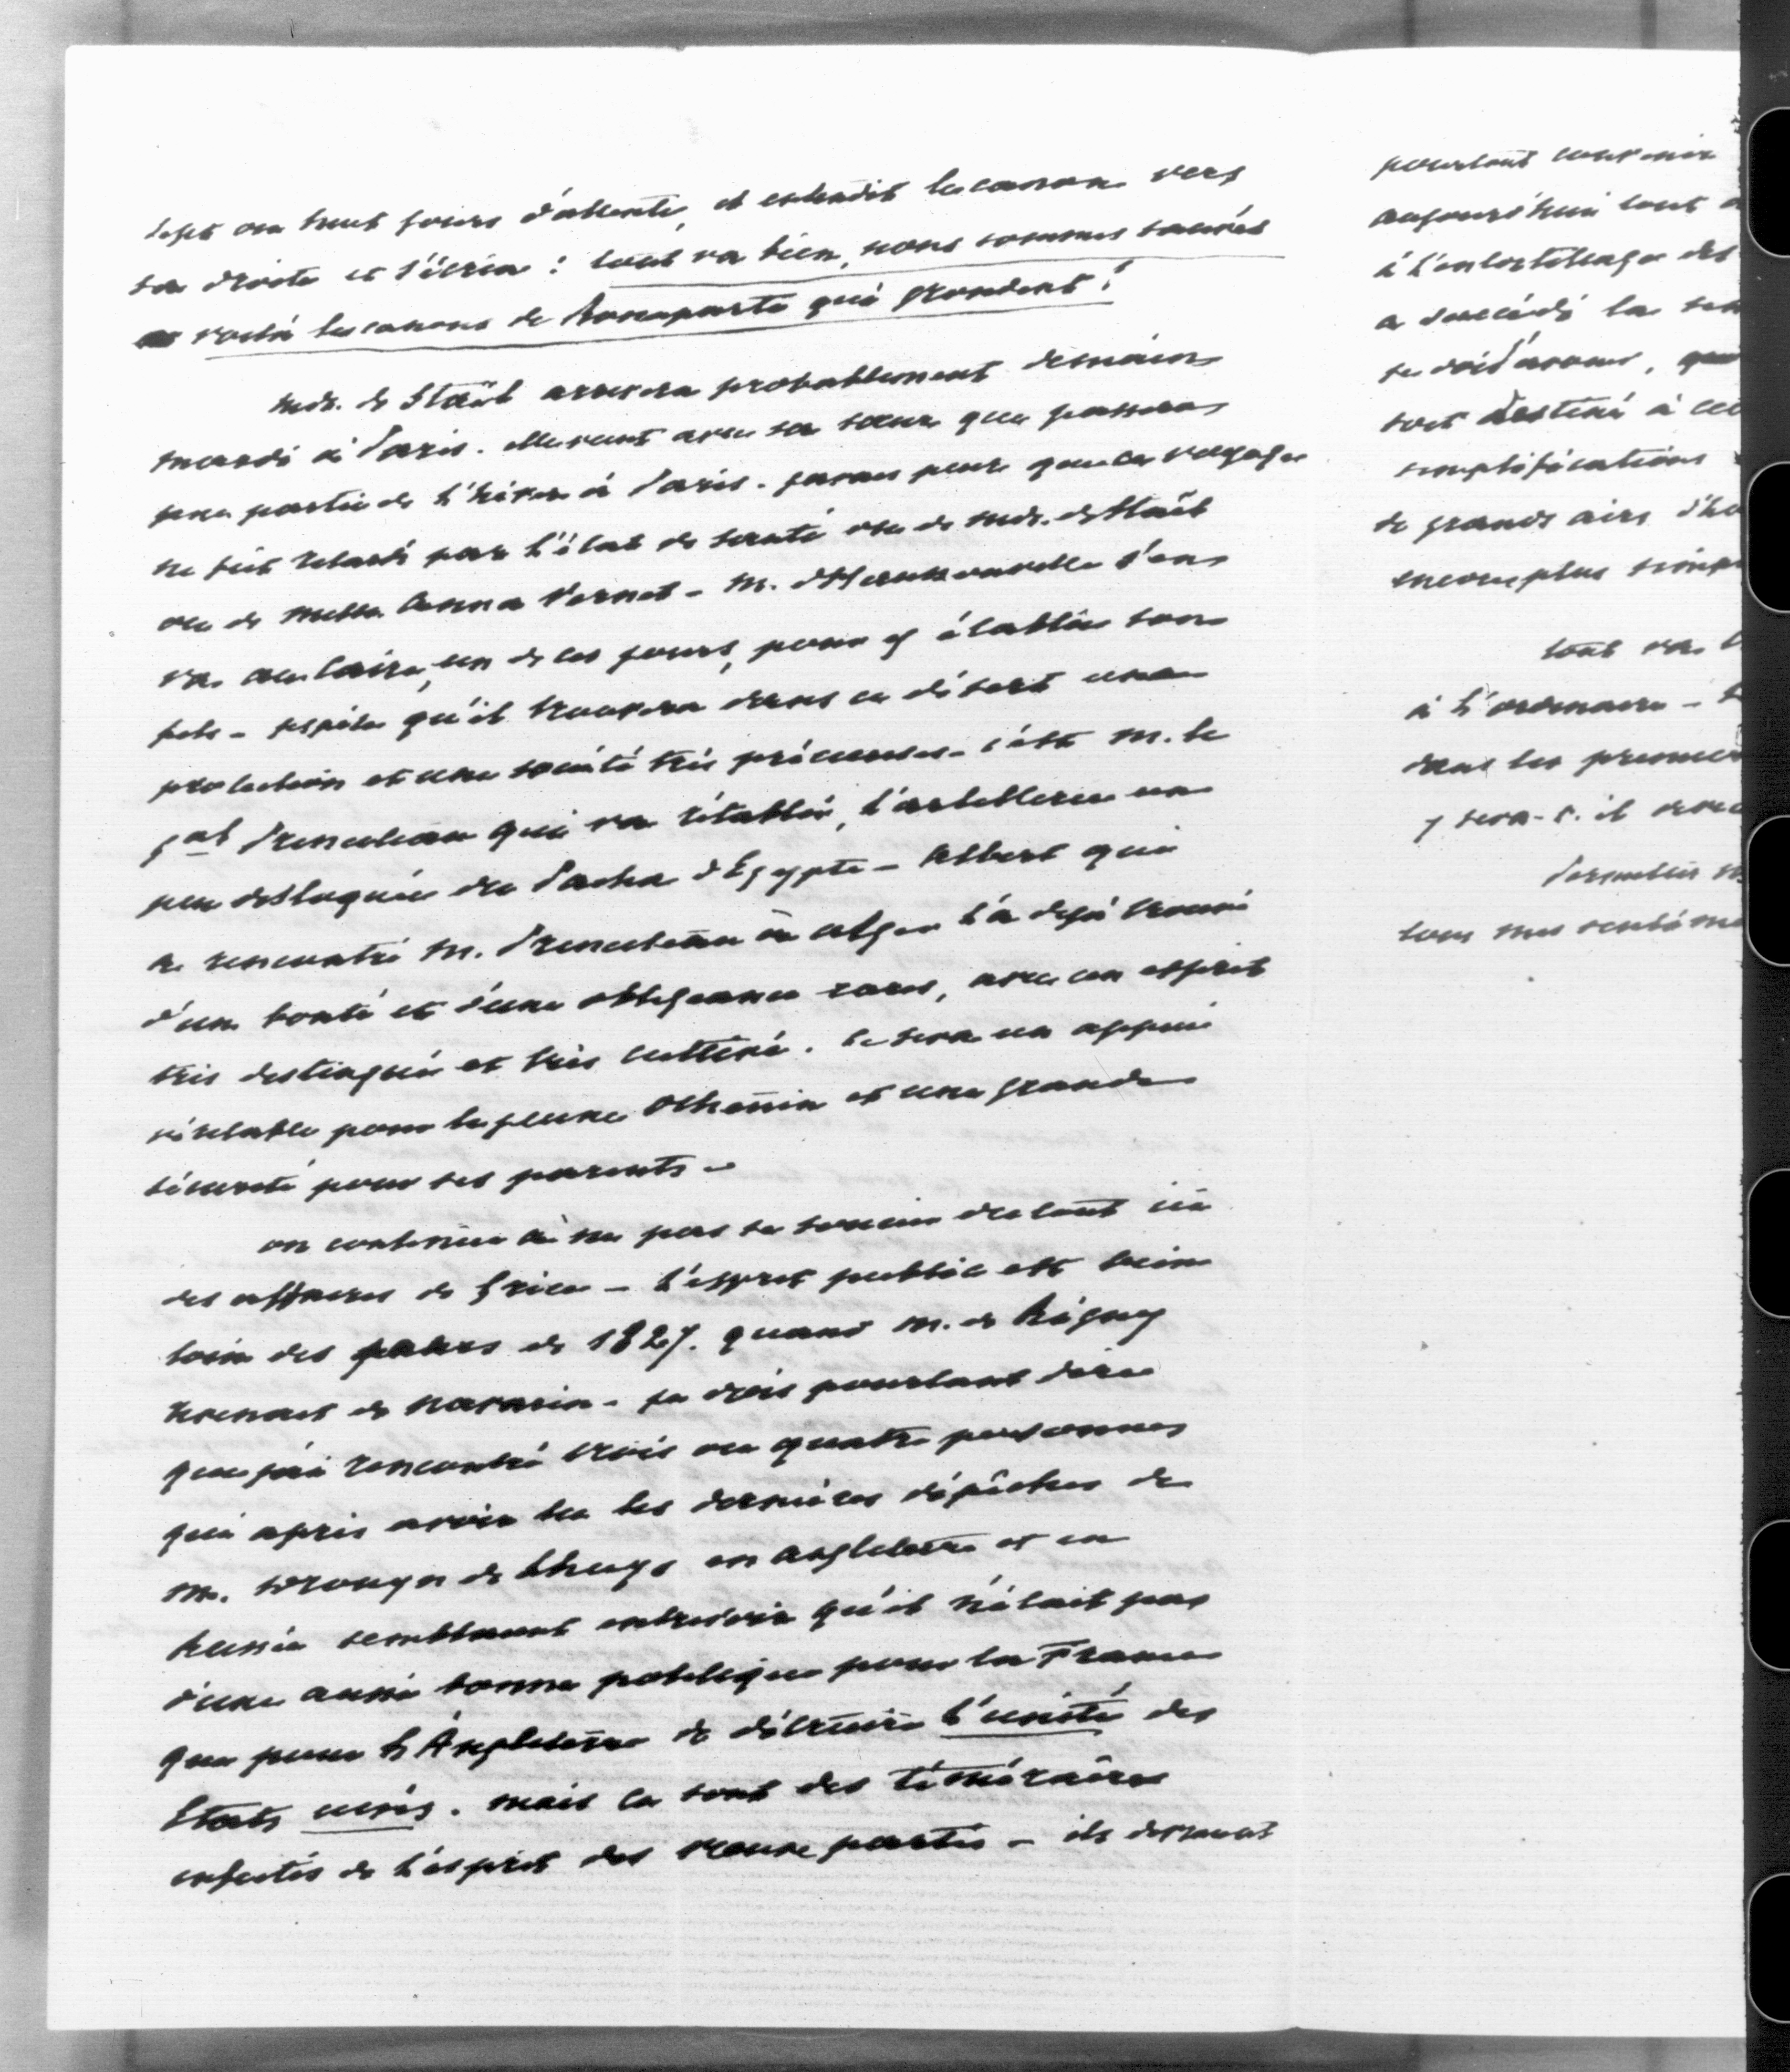 sept ou huit jours d'attente, et entendit le canon vers
sa droite et s'écria : tout va bien, nous sommes sauvés
voilà les canons de Bonaparte qui grondent !
Mde. de Staël arrivera probablement demain
mardi à Paris. elle vient avec sa sœur qui passera
une partie de l'hiver à Paris. j'avais peur que ce voyage
ne fut retardé par l'état de santé ou de mde. de Staël
ou de melle. Anna Vernet - M. d'Haussonville s'en
va au Caire, un de ces jours, pour y établir son
fils - j'espère qu'il trouvera dans ce désert une
protection et une société très précieuses - c'est M. le
gal Princeteau qui va rétablir l'artillerie un
peu disloquée du Pacha d'Egypte - Albert qui
a rencontré M. Princeteau à Alger l'a déjà trouvé
d'une bonté et d'une obligeance rares, avec un esprit
très distingué et très cultivé. ce sera un appui
véritable pour le jeune Othenin et une grande
sécurité pour ses parents -
on continue à ne pas se soucier du tout ici
des affaires de Grèce - l'esprit public est bien
loin des jours de 1827. quand M. de Rigny
revenait de Navarin - je dois pourtant dire
que j'ai rencontré trois ou quatre personnes
qui après avoir lu les dernières dépêches de
M. Drouyn de Lhuys en Angleterre et en
Russie semblaient entrevoir qu'il n'était pas
d'une aussi bonne politique pour la France
que pour l'Angleterre de détruire l'unité des
Etats unis. mais ce sont des téméraires
infectés de l'esprit des vieux partis - ils devraient
pourtant convenir
aujourd'hui tout
à l'entortillage des
a succédé la
je dois l'avouer,
soit destiné à
simplifications
de grands airs
encore plus
tout va
à l'ordinaire -
dans les premiers
y sera-t-il
Permettez
tous mes sentiments